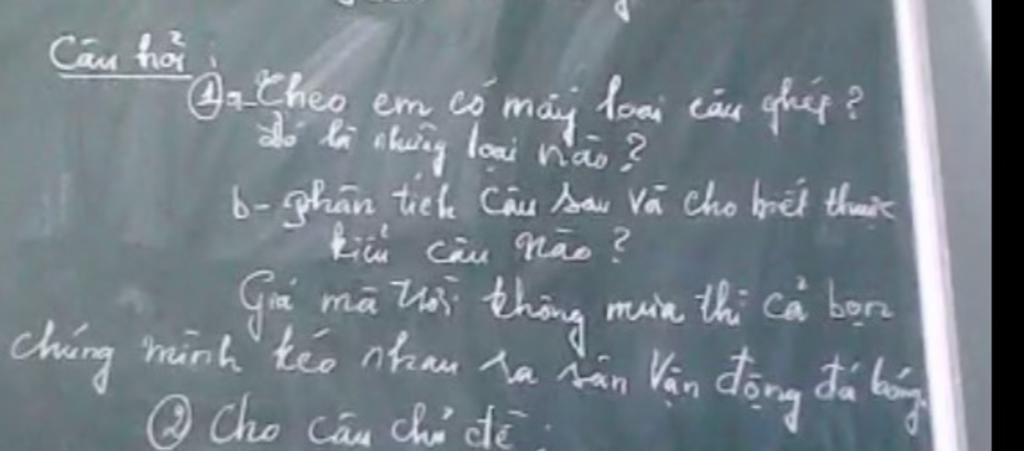 Câu hỏi :
① a- Theo em có mấy loại câu ghép ?
đó là những loại nào ?
b- phân tích câu sau và cho biết thuộc
kiểu câu nào ?
Giá mà trời không mưa thì cả bọn
chúng mình kéo nhau ra sân vận động đá bóng.
② Cho câu chủ đề :